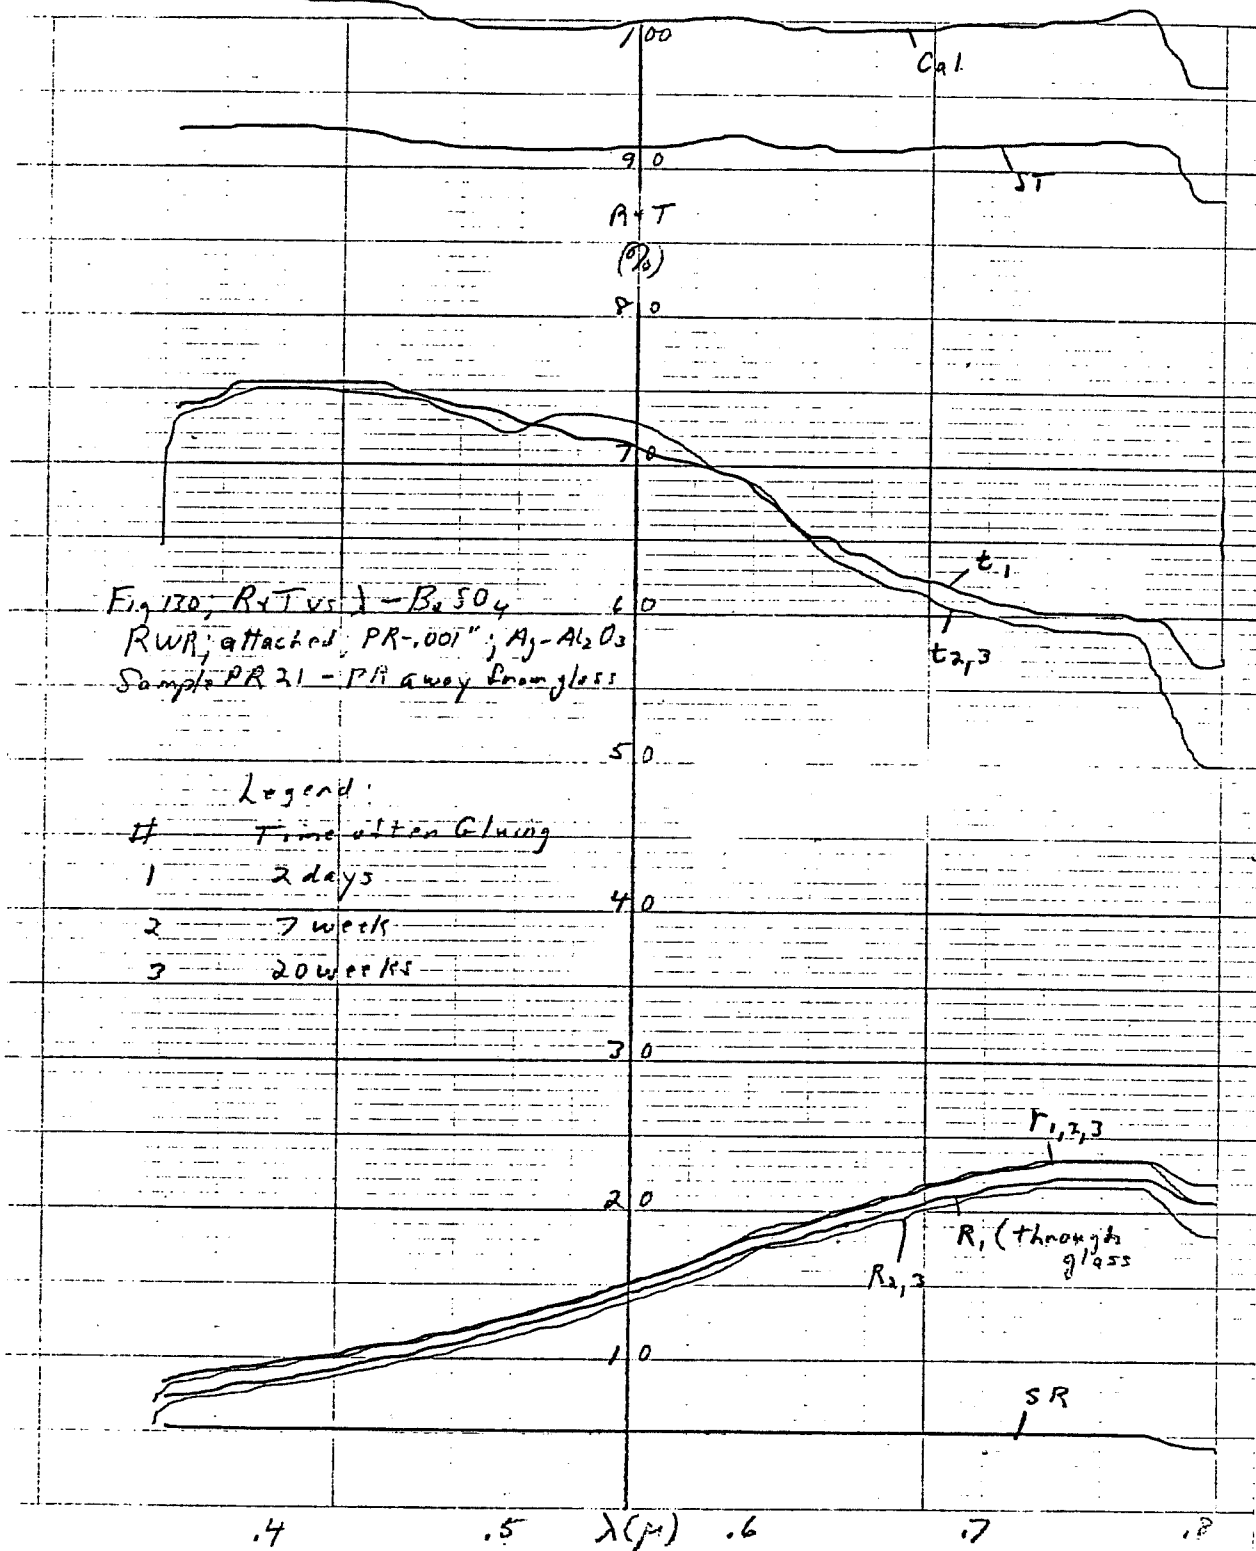 100
Cal.
90
ST
R+T
(%)
80
70
t1
Fig 130; R+T vs λ - BaSO4
60
RWR; attached; PR-.001"; Ag-Al2O3
t2,3
Sample PR 21 - PR away from glass
50
Legend:
# Time after Gluing
1 2 days
40
2 7 week
3 20 weeks
30
r1,2,3
20
R1 (through
glass
R2,3
10
SR
.4 .5 λ(μ) .6 .7 .8